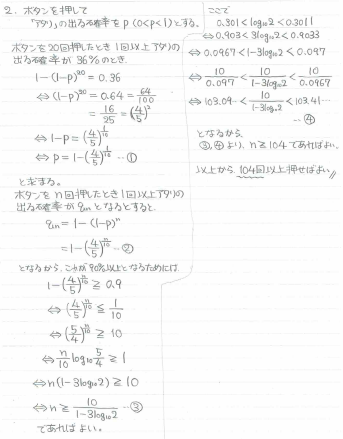 2. ボタンを押して
「アタリ」の出る確率をp(0<p<1)とする。
ボタンを20回押したとき1回以上アタリの
出る確率が36%のとき、
1-(1-p)^20 = 0.36
⇔(1-p)^20 = 0.64 = 64/100
= 16/25 = (4/5)^2
⇔ 1-p = (4/5)^(1/10)
⇔ p = 1-(4/5)^(1/10) …①
と定まる。
ボタンをn回押したとき1回以上アタリの
出る確率がq(n)となるとすると、
q(n) = 1-(1-p)^n
= 1-(4/5)^(n/10) …②
となるから、これが90%以上となるためには、
1-(4/5)^(n/10) ≧ 0.9
⇔ (4/5)^(n/10) ≦ 1/10
⇔ (5/4)^(n/10) ≧ 10
⇔ n/10 log10 5/4 ≧ 1
⇔ n(1-3log10 2) ≧ 10
⇔ n ≧ 10/(1-3log10 2) …③
であればよい。
ここで
0.301 < log10 2 < 0.3011
⇔ 0.903 < 3log10 2 < 0.9033
⇔ 0.0967 < 1-3log10 2 < 0.097
⇔ 10/0.097 < 10/(1-3log10 2) < 10/0.0967
⇔ 103.09… < 10/(1-3log10 2) < 103.41…
…④
となるから
③,④より、n≧104であればよい。
以上から、104回以上押せばよい。